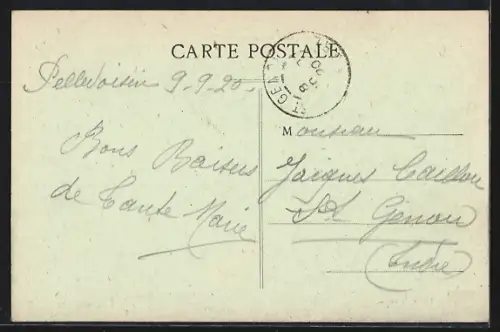 CARTE POSTALE
Pellevoisin 9-9-20
Bons Baisers
de Tante Marie
Monsieur
Jacques Caillou
St Genou
(Indre)
ST GEN